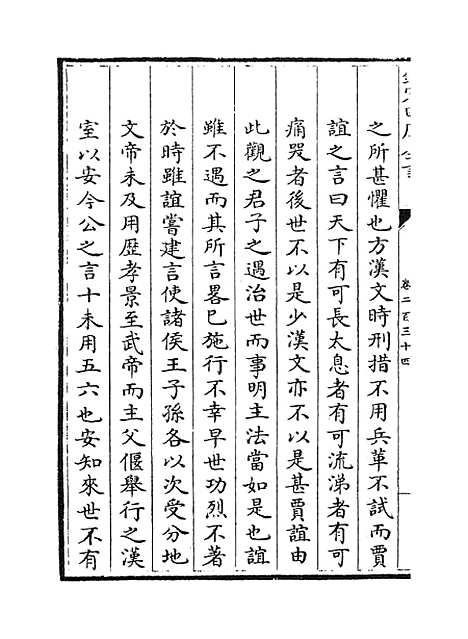 卷二百三十四
之所甚懼也方漢文時刑措不用兵革不試而賈
誼之言曰天下有可長太息者有可流涕者有可
痛哭者後世不以是少漢文亦不以是甚賈誼由
此觀之君子之遇治世而事明主法當如是也誼
雖不遇而其所言畧已施行不幸早世功烈不著
於時雖誼嘗建言使諸侯王子孫各以次受分地
文帝未及用歴孝景至武帝而主父偃舉行之漢
室以安今公之言十未用五六也安知來世不有